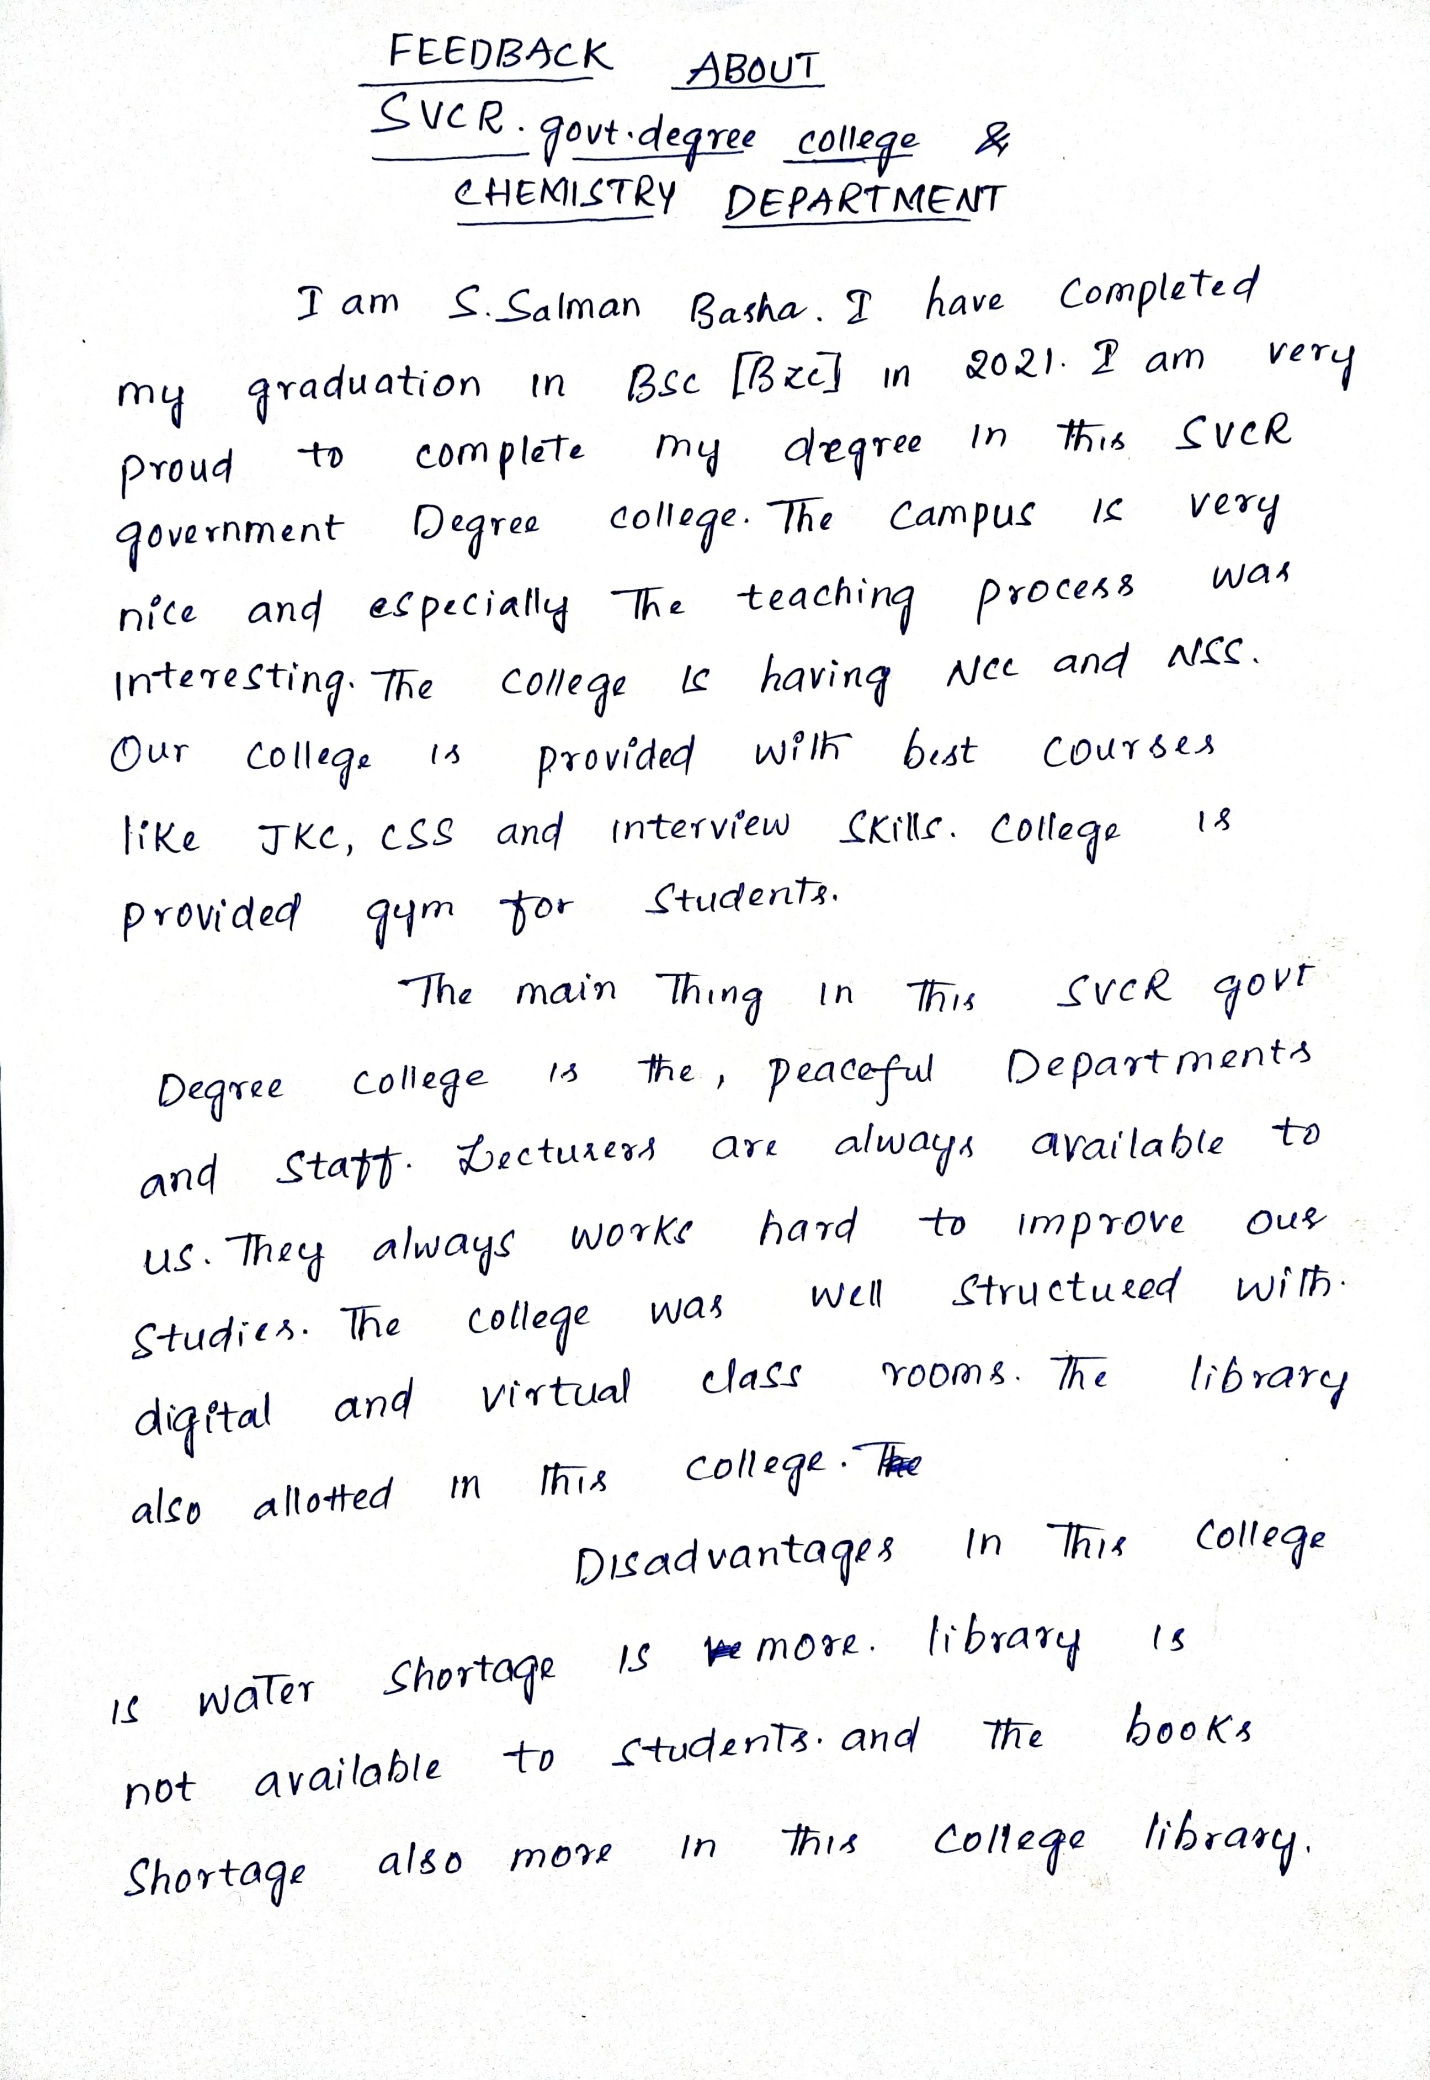 FEEDBACK ABOUT
SVCR. govt. degree college &
CHEMISTRY DEPARTMENT
I am S. Salman Basha. I have Completed
my graduation in BSC [Bzc] in 2021. I am very
proud to complete my degree in this SVCR
government Degree college. The campus is very
nice and especially The teaching process was
interesting. The college is having NCC and NSS.
Our college is provided with best courses
like JKC, CSS and interview skills. College is
provided gym for students.
The main Thing in this SVCR govt
Degree college is the, peaceful Departments
and staff. Lecturers are always available to
us. They always works hard to improve our
studies. The college was well structured with.
digital and virtual class rooms. The library
also allotted in this college. The
Disadvantages in This College
is water shortage is more. library is
not available to students. and the books
Shortage also more in this college library.